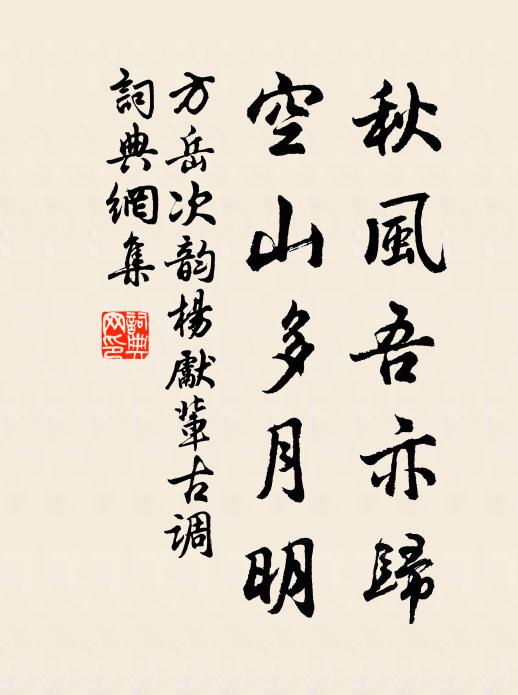 秋風吾亦歸
空山多月明
方岳次韵楊獻輩古调
詞典網集
詞典
网印